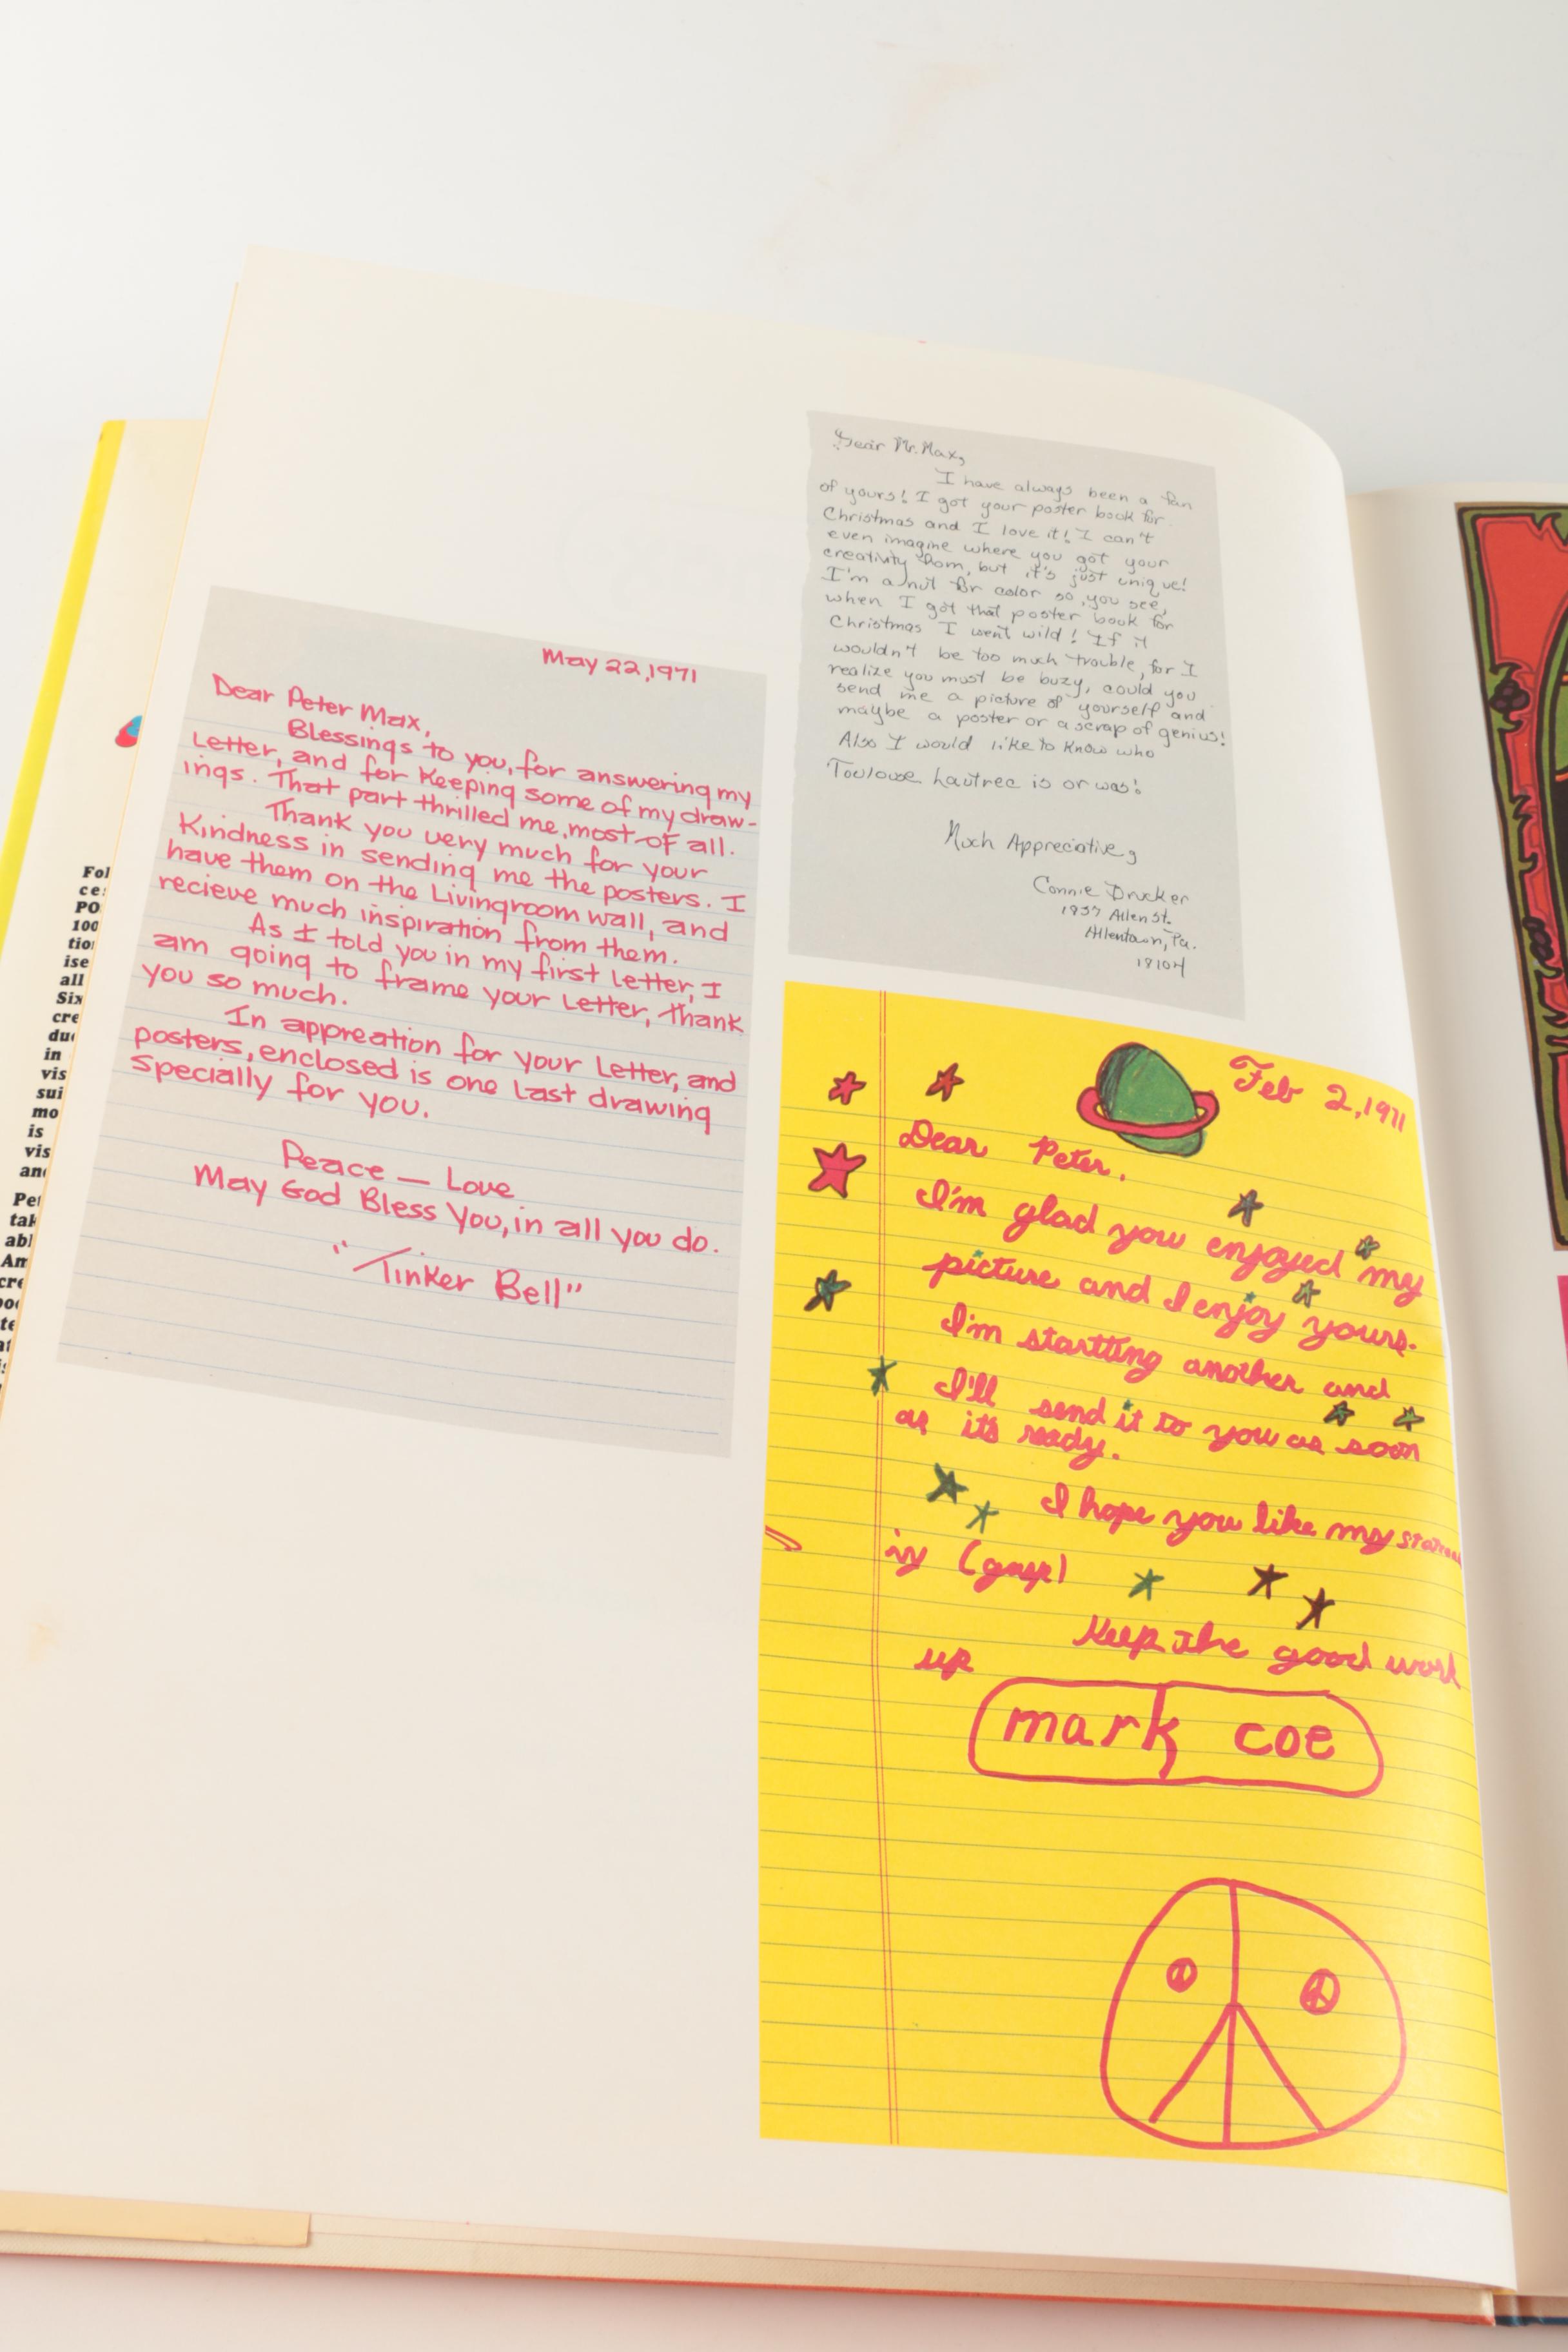 May 22, 1971
Dear Peter Max,
Blessings to you, for answering my
Letter, and for Keeping some of my draw-
ings. That part thrilled me, most of all.
Thank you very much for your
Kindness in sending me the posters. I
have them on the Livingroom wall, and
recieve much inspiration from them.
As I told you in my first Letter, I
am going to frame your Letter, Thank
you so much.
In appreation for your Letter, and
posters, enclosed is one Last drawing
Specially for you.
Peace — Love
May God Bless You, in all you do.
"Tinker Bell"
Dear Mr. Max,
I have always been a fan
of yours! I got your poster book for
Christmas and I love it! I can't
even imagine where you got your
creativity from, but it's just unique!
I'm a nut for color so, you see,
when I got that poster book for
Christmas I went wild! If it
wouldn't be too much trouble, for I
realize you must be buzy, could you
send me a picture of yourself and
maybe a poster or a scrap of genius!
Also I would like to know who
Toulouse Lautrec is or was!
Much Appreciative,
Connie Drucker
1937 Allen St.
Allentown, Pa.
18104
Feb 2, 1971
Dear Peter,
I'm glad you enjoyed my
picture and I enjoy yours.
I'm startting another and
I'll send it to you as soon
as it's ready.
I hope you like my
(gasp)
Keep the good work
up
mark coe
Fol
ces
PO
100
tion
ise
all
Six
cre
du
in
vis
sui
mo
is
vis
and
Pet
tak
abl
Am
cre